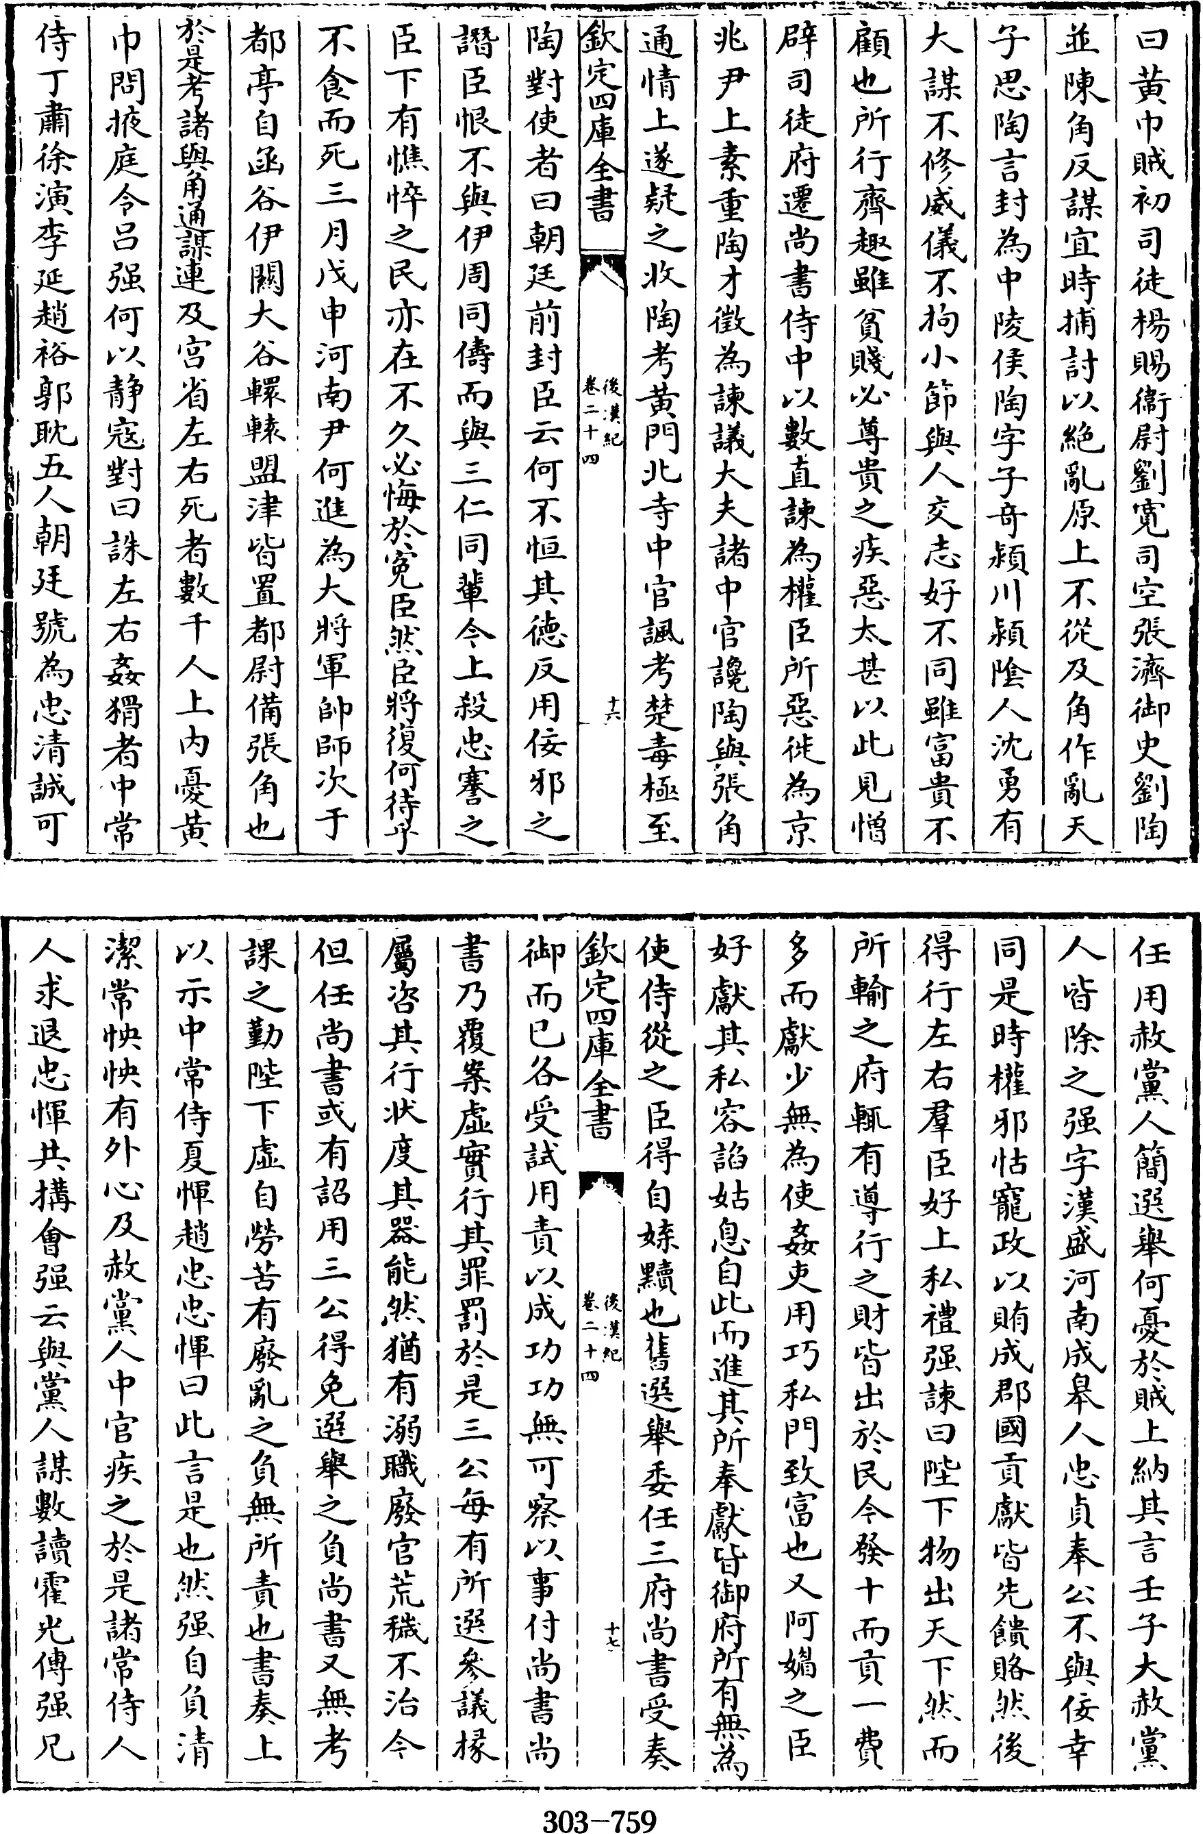 曰黄巾賊初司徒楊賜衛尉劉寛司空張濟御史劉陶
並陳角反謀宜時捕討以絶亂原上不從及角作亂天
子思陶言封為中陵侯陶字子竒潁川潁隂人沈勇有
大謀不修威儀不拘小節與人交志好不同雖富貴不
顧也所行齊趣雖貧賤必尊貴之疾惡太甚以此見憎
辟司徒府遷尚書侍中以數直諫為權臣所惡徙為京
兆尹上素重陶才徵為諫議大夫諸中官讒陶與張角
通情上遂疑之收陶考黄門北寺中官諷考楚毒極至
欽定四庫全書
後漢紀
卷二十四
十六
陶對使者曰朝廷前封臣云何不恒其德反用佞邪之
譖臣恨不與伊周同儔而與三仁同輩今上殺忠謇之
臣下有憔悴之民亦在不久必悔於寃臣然臣將復何待乎
不食而死三月戊申河南尹何進為大將軍帥師次于
都亭自函谷伊闕大谷轘轅盟津皆置都尉備張角也
於是考諸與角通謀連及宫省左右死者數千人上内憂黄
巾問掖庭令吕强何以静寇對曰誅左右姦猾者中常
侍丁肅徐演李延趙裕郭耽五人朝廷號為忠清誠可
任用赦黨人簡選舉何憂於賊上納其言壬子大赦黨
人皆除之强字漢盛河南成臯人忠貞奉公不與佞幸
同是時權邪怙寵政以賄成郡國貢獻皆先饋賂然後
得行左右羣臣好上私禮强諫曰陛下物出天下然而
所輸之府輒有導行之財皆出於民今發十而貢一費
多而獻少無為使姦吏用巧私門致富也又阿媚之臣
好獻其私容諂姑息自此而進其所奉獻皆御府所有無為
使侍從之臣得自媟黷也舊選舉委任三府尚書受奏
欽定四庫全書
後漢紀
卷二十四
十七
御而已各受試用責以成功功無可察以事付尚書尚
書乃覆案虚實行其罪罰於是三公每有所選參議掾
屬咨其行狀度其器能然猶有溺職廢官荒穢不治今
但任尚書或有詔用三公得免選舉之負尚書又無考
課之勤陛下虚自勞苦有廢亂之負無所責也書奏上
以示中常侍夏惲趙忠忠惲曰此言是也然强自負清
潔常怏怏有外心及赦黨人中官疾之於是諸常侍人
人求退忠惲共搆會强云與黨人謀數讀霍光傳强兄
303-759